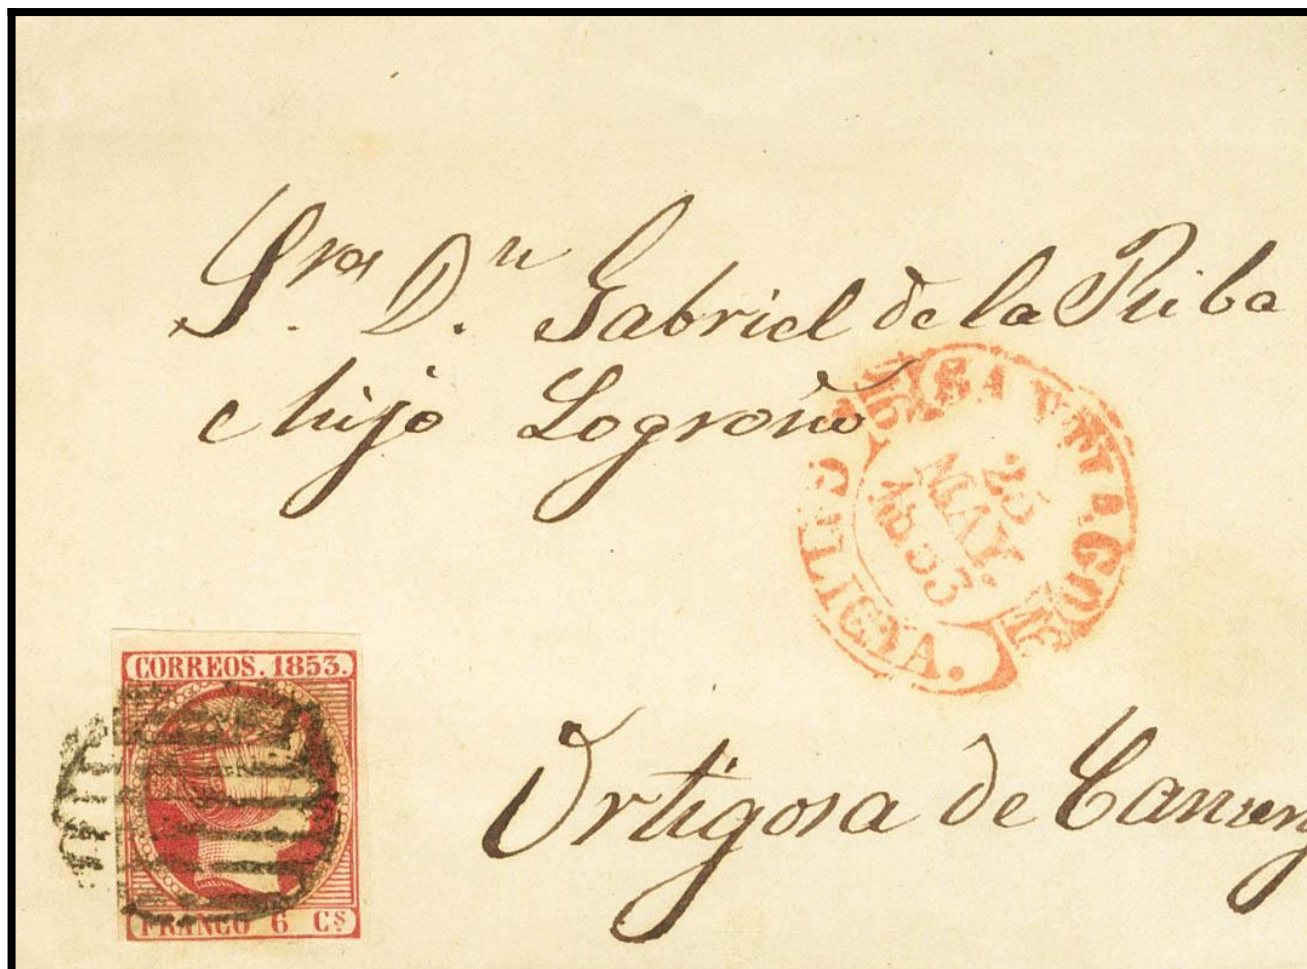 Sres. Dn. Gabriel de la Riba
é hijo Logroño
SANTIAGO
25
MAY.
1853
GALICIA.
CORREOS. 1853.
FRANCO 6 Cs
Ortigosa de